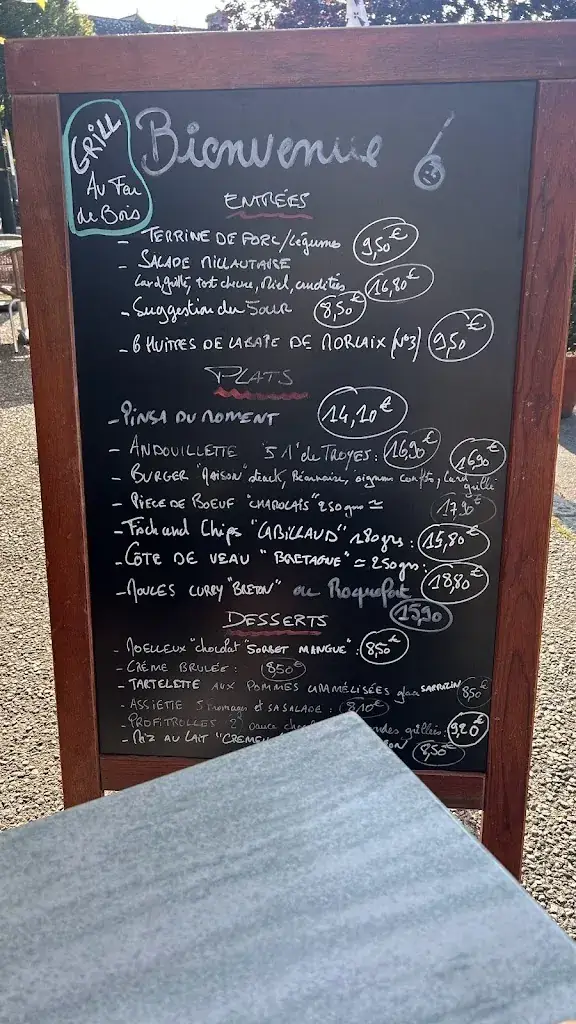 GRILL
Au Feu
de Bois
Bienvenue
ENTRÉES
- TERRINE DE PORC/Légumes 9,50€
- SALADE MILLAUTAISE
Lard grillé, tost chèvre, Miel, crudités 16,80€
- Suggestion du Jour 8,50€
- 6 HUITRES DE LA BAIE DE MORLAIX (N°3) 9,50€
PLATS
- PINSA DU MOMENT 14,10€
- ANDOUILLETTE 5 A de TROYES : 16,90€
- BURGER "MAISON" steack, Béarnaise, oignons confits, Lard grillé 16,90€
- PIÈCE DE BOEUF "CHAROLAIS" 250grs ≃ 17,90€
- Fish and Chips "CABILLAUD" 180grs : 15,80€
- CÔTE DE VEAU "BRETAGNE" ≃ 250grs : 18,80€
- MOULES CURRY "BRETON" ou Roquefort 15,90
DESSERTS
- MOELLEUX "chocolat" "SORBET MANGUE" : 8,50€
- CRÈME BRULÉE : 8,50€
- TARTELETTE AUX POMMES CARAMÉLISÉES glace SARRAZIN 8,50€
- ASSIETTE 3 fromages et SA SALADE : 8,10€
- PROFITROLLES 2 sauce grillées : 9,20€
- RIZ AU LAIT 8,50€